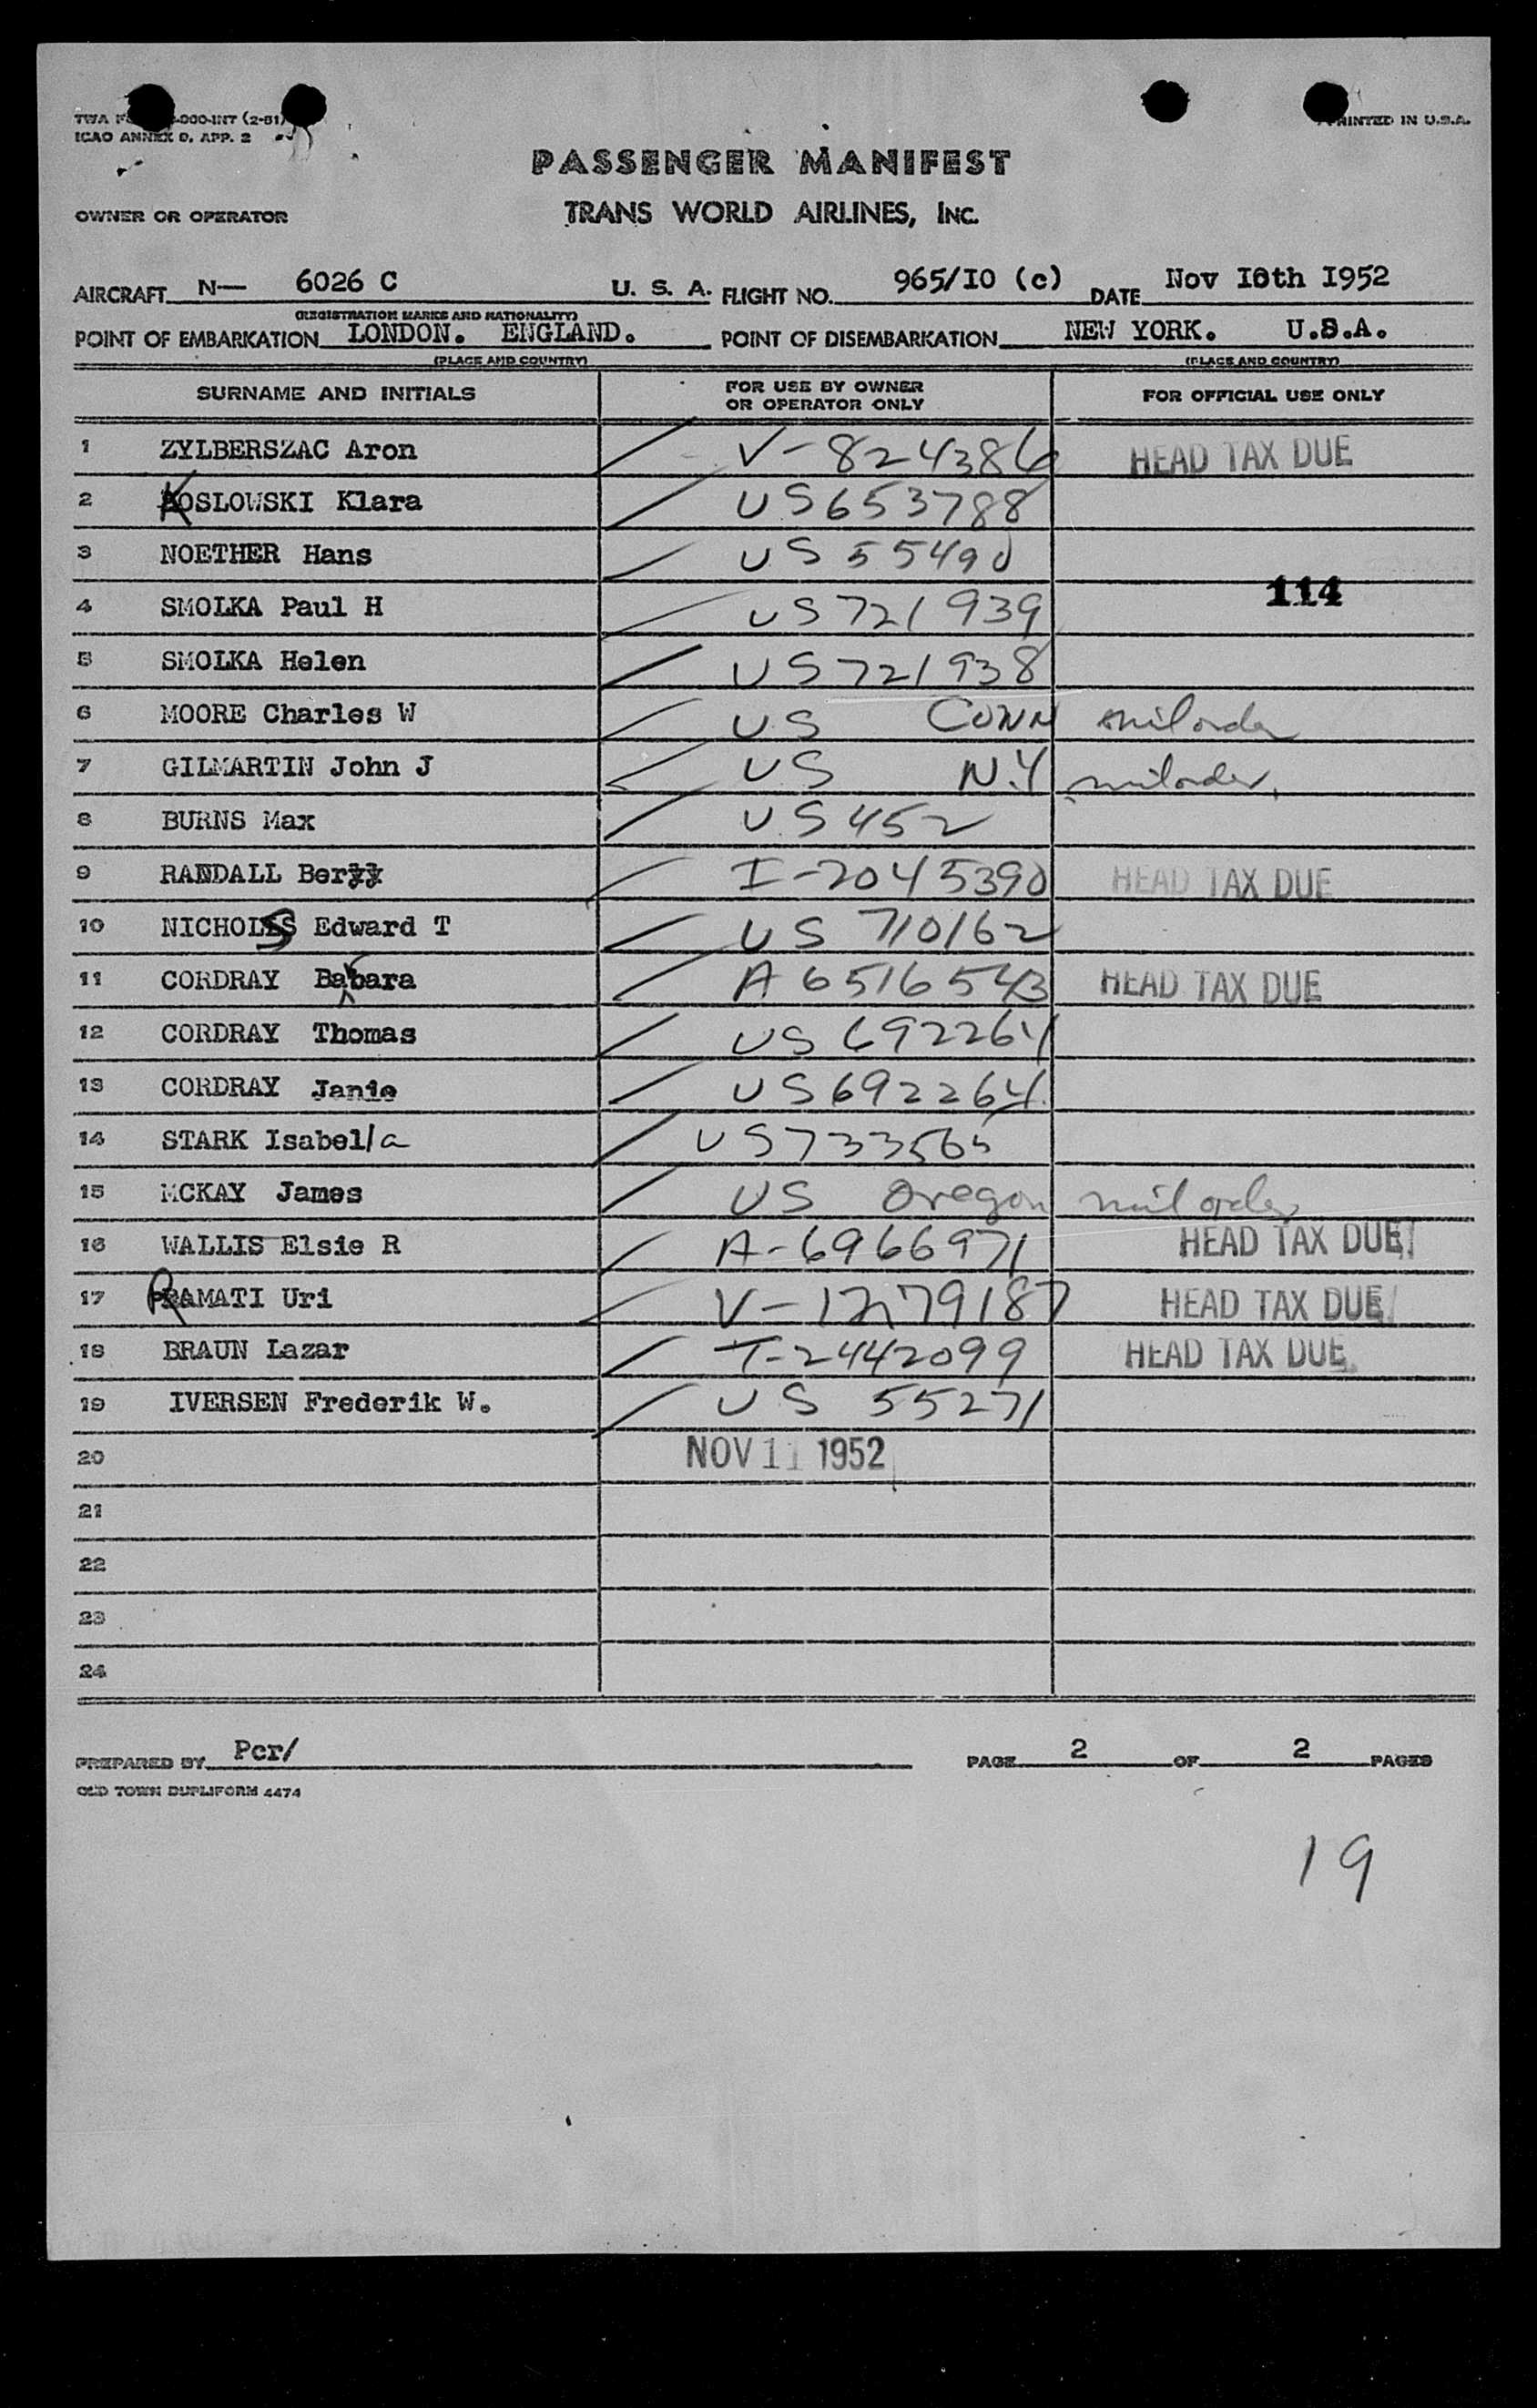 -000-INT (2-51)
ICAO ANNEX 9, APP. 2
PRINTED IN U.S.A.
PASSENGER MANIFEST
OWNER OR OPERATOR TRANS WORLD AIRLINES, INC.
AIRCRAFT N— 6026 C U. S. A. FLIGHT NO. 965/I0 (c) DATE Nov I0th I952
(REGISTRATION MARKS AND NATIONALITY)
POINT OF EMBARKATION LONDON. ENGLAND. POINT OF DISEMBARKATION NEW YORK. U.S.A.
(PLACE AND COUNTRY) (PLACE AND COUNTRY)
SURNAME AND INITIALS FOR USE BY OWNER OR OPERATOR ONLY FOR OFFICIAL USE ONLY
1 ZYLBERSZAC Aron V-824386 HEAD TAX DUE
2 KOSLOWSKI Klara US653788
3 NOETHER Hans US 55490
114
4 SMOLKA Paul H US 721939
5 SMOLKA Helen US 721938
6 MOORE Charles W US CONN mil order
7 GILMARTIN John J US N.Y mil order
8 BURNS Max US 452
9 RANDALL Ber I-2045390 HEAD TAX DUE
10 NICHOLS Edward T US 710162
11 CORDRAY Barbara A 6516543 HEAD TAX DUE
12 CORDRAY Thomas US 692264
13 CORDRAY Janie US 692264
14 STARK Isabella US 733565
15 MCKAY James US Oregon mil order
16 WALLIS Elsie R A-6966971 HEAD TAX DUE
17 RAMATI Uri HEAD TAX DUE
18 BRAUN Lazar T-2442099 HEAD TAX DUE
19 IVERSEN Frederik W. US 55271
20 NOV 11 1952
21
22
23
24
PREPARED BY Pcr/ PAGE 2 OF 2 PAGES
OLD TOWN DUPLIFORM 4474
19